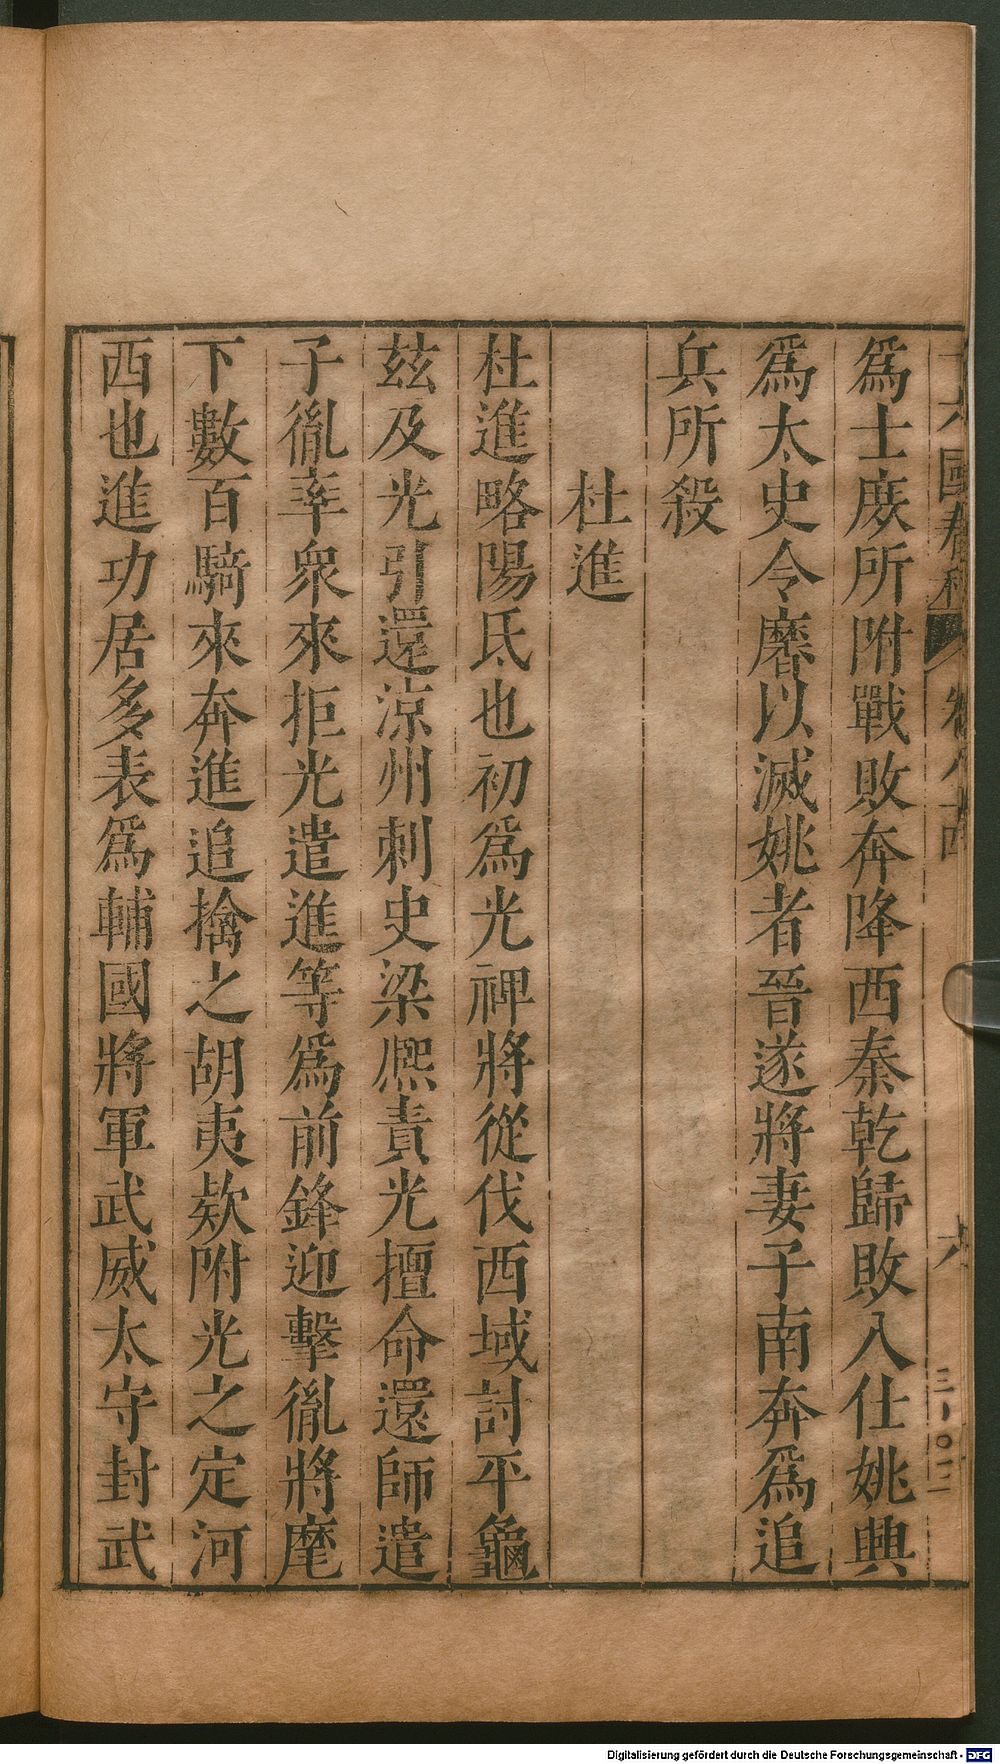 爲士庻所附戰敗奔降西秦乾歸敗入仕姚興
爲太史令黁以滅姚者晉遂將妻子南奔爲追
兵所殺
杜進
杜進略陽氐也初爲光裨將從伐西域討平龜
玆及光引還涼州刺史梁熈責光擅命還師遣
子胤率衆來拒光遣進等爲前鋒迎擊胤將麾
下數百騎來奔進追擒之胡夷欵附光之定河
西也進功居多表爲輔國將軍武威太守封武
六國春秋
卷八十四
六
三一〇二
Digitalisierung gefördert durch die Deutsche Forschungsgemeinschaft - DFG